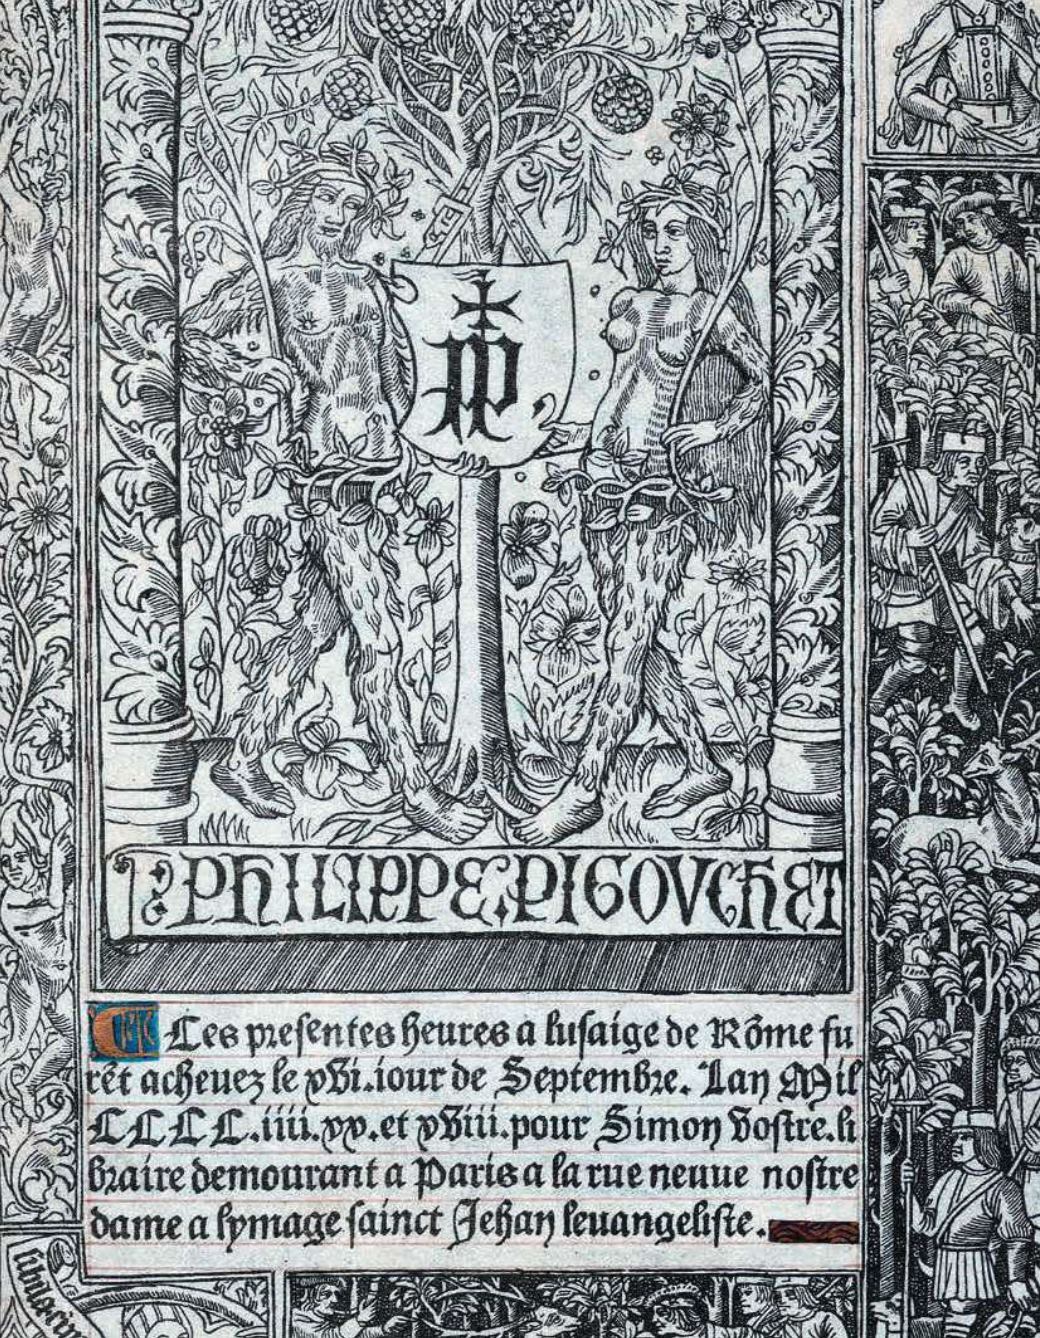 PHILIPPE.PIGOVCHET
Ces presentes heures a lusaige de Rõme fu
rẽt acheuez le xvi.iour de Septembre. Lan Mil
CCCC.iiii.xx.et xviii.pour Simon Vostre.li
braire demourant a Paris a la rue neuue nostre
dame a lymage sainct Jehan leuangeliste.